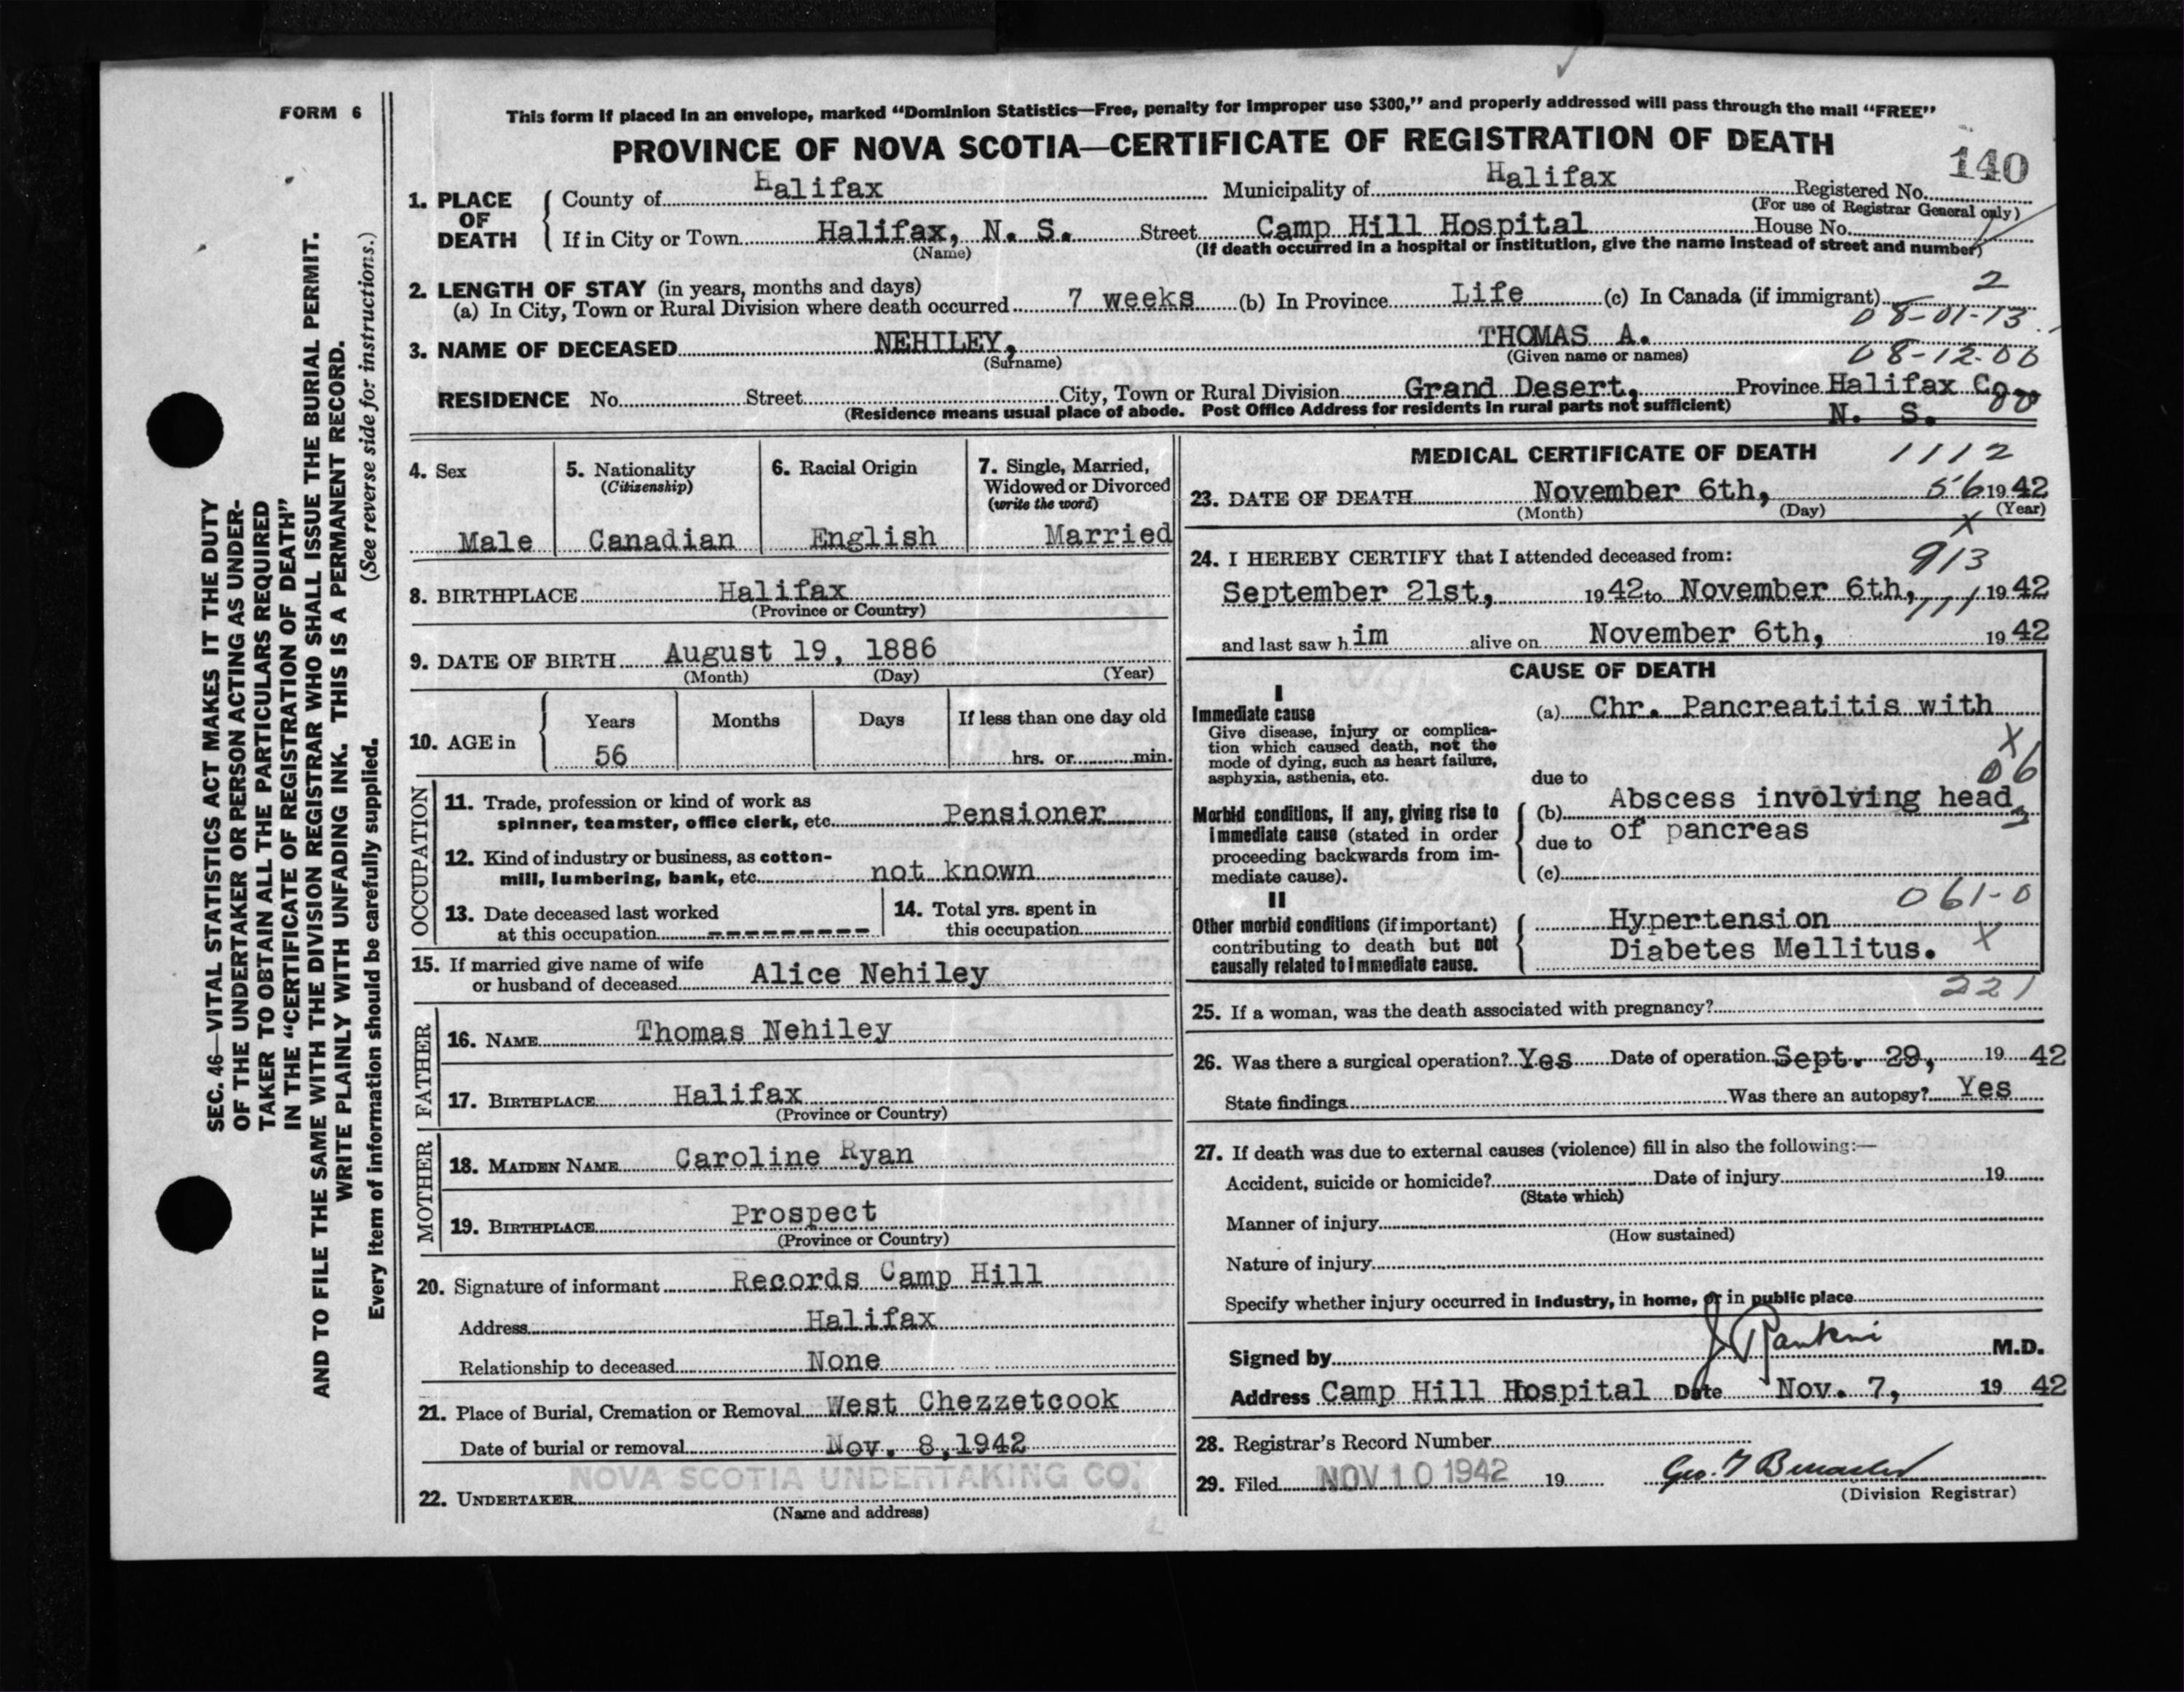 FORM 6
This form if placed in an envelope, marked “Dominion Statistics—Free, penalty for improper use $300,” and properly addressed will pass through the mail “FREE”
PROVINCE OF NOVA SCOTIA—CERTIFICATE OF REGISTRATION OF DEATH
140
1. PLACE OF DEATH
County of Halifax Municipality of Halifax Registered No.
(For use of Registrar General only)
If in City or Town Halifax, N. S. Street Camp Hill Hospital House No.
(Name) (If death occurred in a hospital or institution, give the name instead of street and number)
2. LENGTH OF STAY (in years, months and days)
2
(a) In City, Town or Rural Division where death occurred 7 weeks (b) In Province Life (c) In Canada (if immigrant)
08-01-13
3. NAME OF DECEASED NEHILEY, THOMAS A.
(Surname) (Given name or names) 08-12-00
RESIDENCE No. Street City, Town or Rural Division Grand Desert, Province Halifax Co.,
(Residence means usual place of abode. Post Office Address for residents in rural parts not sufficient) N. S. 00
4. Sex
Male
5. Nationality
(Citizenship)
Canadian
6. Racial Origin
English
7. Single, Married,
Widowed or Divorced
(write the word)
Married
8. BIRTHPLACE Halifax
(Province or Country)
9. DATE OF BIRTH August 19, 1886
(Month) (Day) (Year)
10. AGE in
Years Months Days If less than one day old
56 hrs. or min.
OCCUPATION
11. Trade, profession or kind of work as
spinner, teamster, office clerk, etc. Pensioner
12. Kind of industry or business, as cotton-
mill, lumbering, bank, etc. not known
13. Date deceased last worked
at this occupation ---------
14. Total yrs. spent in
this occupation
15. If married give name of wife
or husband of deceased Alice Nehiley
FATHER
16. NAME Thomas Nehiley
17. BIRTHPLACE Halifax
(Province or Country)
MOTHER
18. MAIDEN NAME Caroline Ryan
19. BIRTHPLACE Prospect
(Province or Country)
20. Signature of informant Records Camp Hill
Address Halifax
Relationship to deceased None
21. Place of Burial, Cremation or Removal West Chezzetcook
Date of burial or removal Nov. 8, 1942
NOVA SCOTIA UNDERTAKING CO.
22. UNDERTAKER
(Name and address)
MEDICAL CERTIFICATE OF DEATH 1112
23. DATE OF DEATH November 6th, 56 19 42
(Month) (Day) (Year)
X
24. I HEREBY CERTIFY that I attended deceased from:
913
September 21st, 19 42 to November 6th, 19 42
111
and last saw h im alive on November 6th, 19 42
CAUSE OF DEATH
I
Immediate cause
Give disease, injury or complica-
tion which caused death, not the
mode of dying, such as heart failure,
asphyxia, asthenia, etc.
(a) Chr. Pancreatitis with
X
06
due to
Morbid conditions, if any, giving rise to
immediate cause (stated in order
proceeding backwards from im-
mediate cause).
(b) Abscess involving head
due to of pancreas
(c)
061-0
II
Other morbid conditions (if important)
contributing to death but not
causally related to immediate cause.
Hypertension
Diabetes Mellitus. X
221
25. If a woman, was the death associated with pregnancy?
26. Was there a surgical operation? Yes Date of operation Sept. 29, 19 42
State findings Was there an autopsy? Yes
27. If death was due to external causes (violence) fill in also the following:—
Accident, suicide or homicide? Date of injury 19
(State which)
Manner of injury
(How sustained)
Nature of injury
Specify whether injury occurred in industry, in home, or in public place
Signed by J Rankin M.D.
Address Camp Hill Hospital Date Nov. 7, 19 42
28. Registrar's Record Number
29. Filed NOV 10 1942 19
(Division Registrar)
SEC. 46—VITAL STATISTICS ACT MAKES IT THE DUTY
OF THE UNDERTAKER OR PERSON ACTING AS UNDER-
TAKER TO OBTAIN ALL THE PARTICULARS REQUIRED
IN THE “CERTIFICATE OF REGISTRATION OF DEATH”
AND TO FILE THE SAME WITH THE DIVISION REGISTRAR WHO SHALL ISSUE THE BURIAL PERMIT.
WRITE PLAINLY WITH UNFADING INK. THIS IS A PERMANENT RECORD.
Every item of information should be carefully supplied. (See reverse side for instructions.)